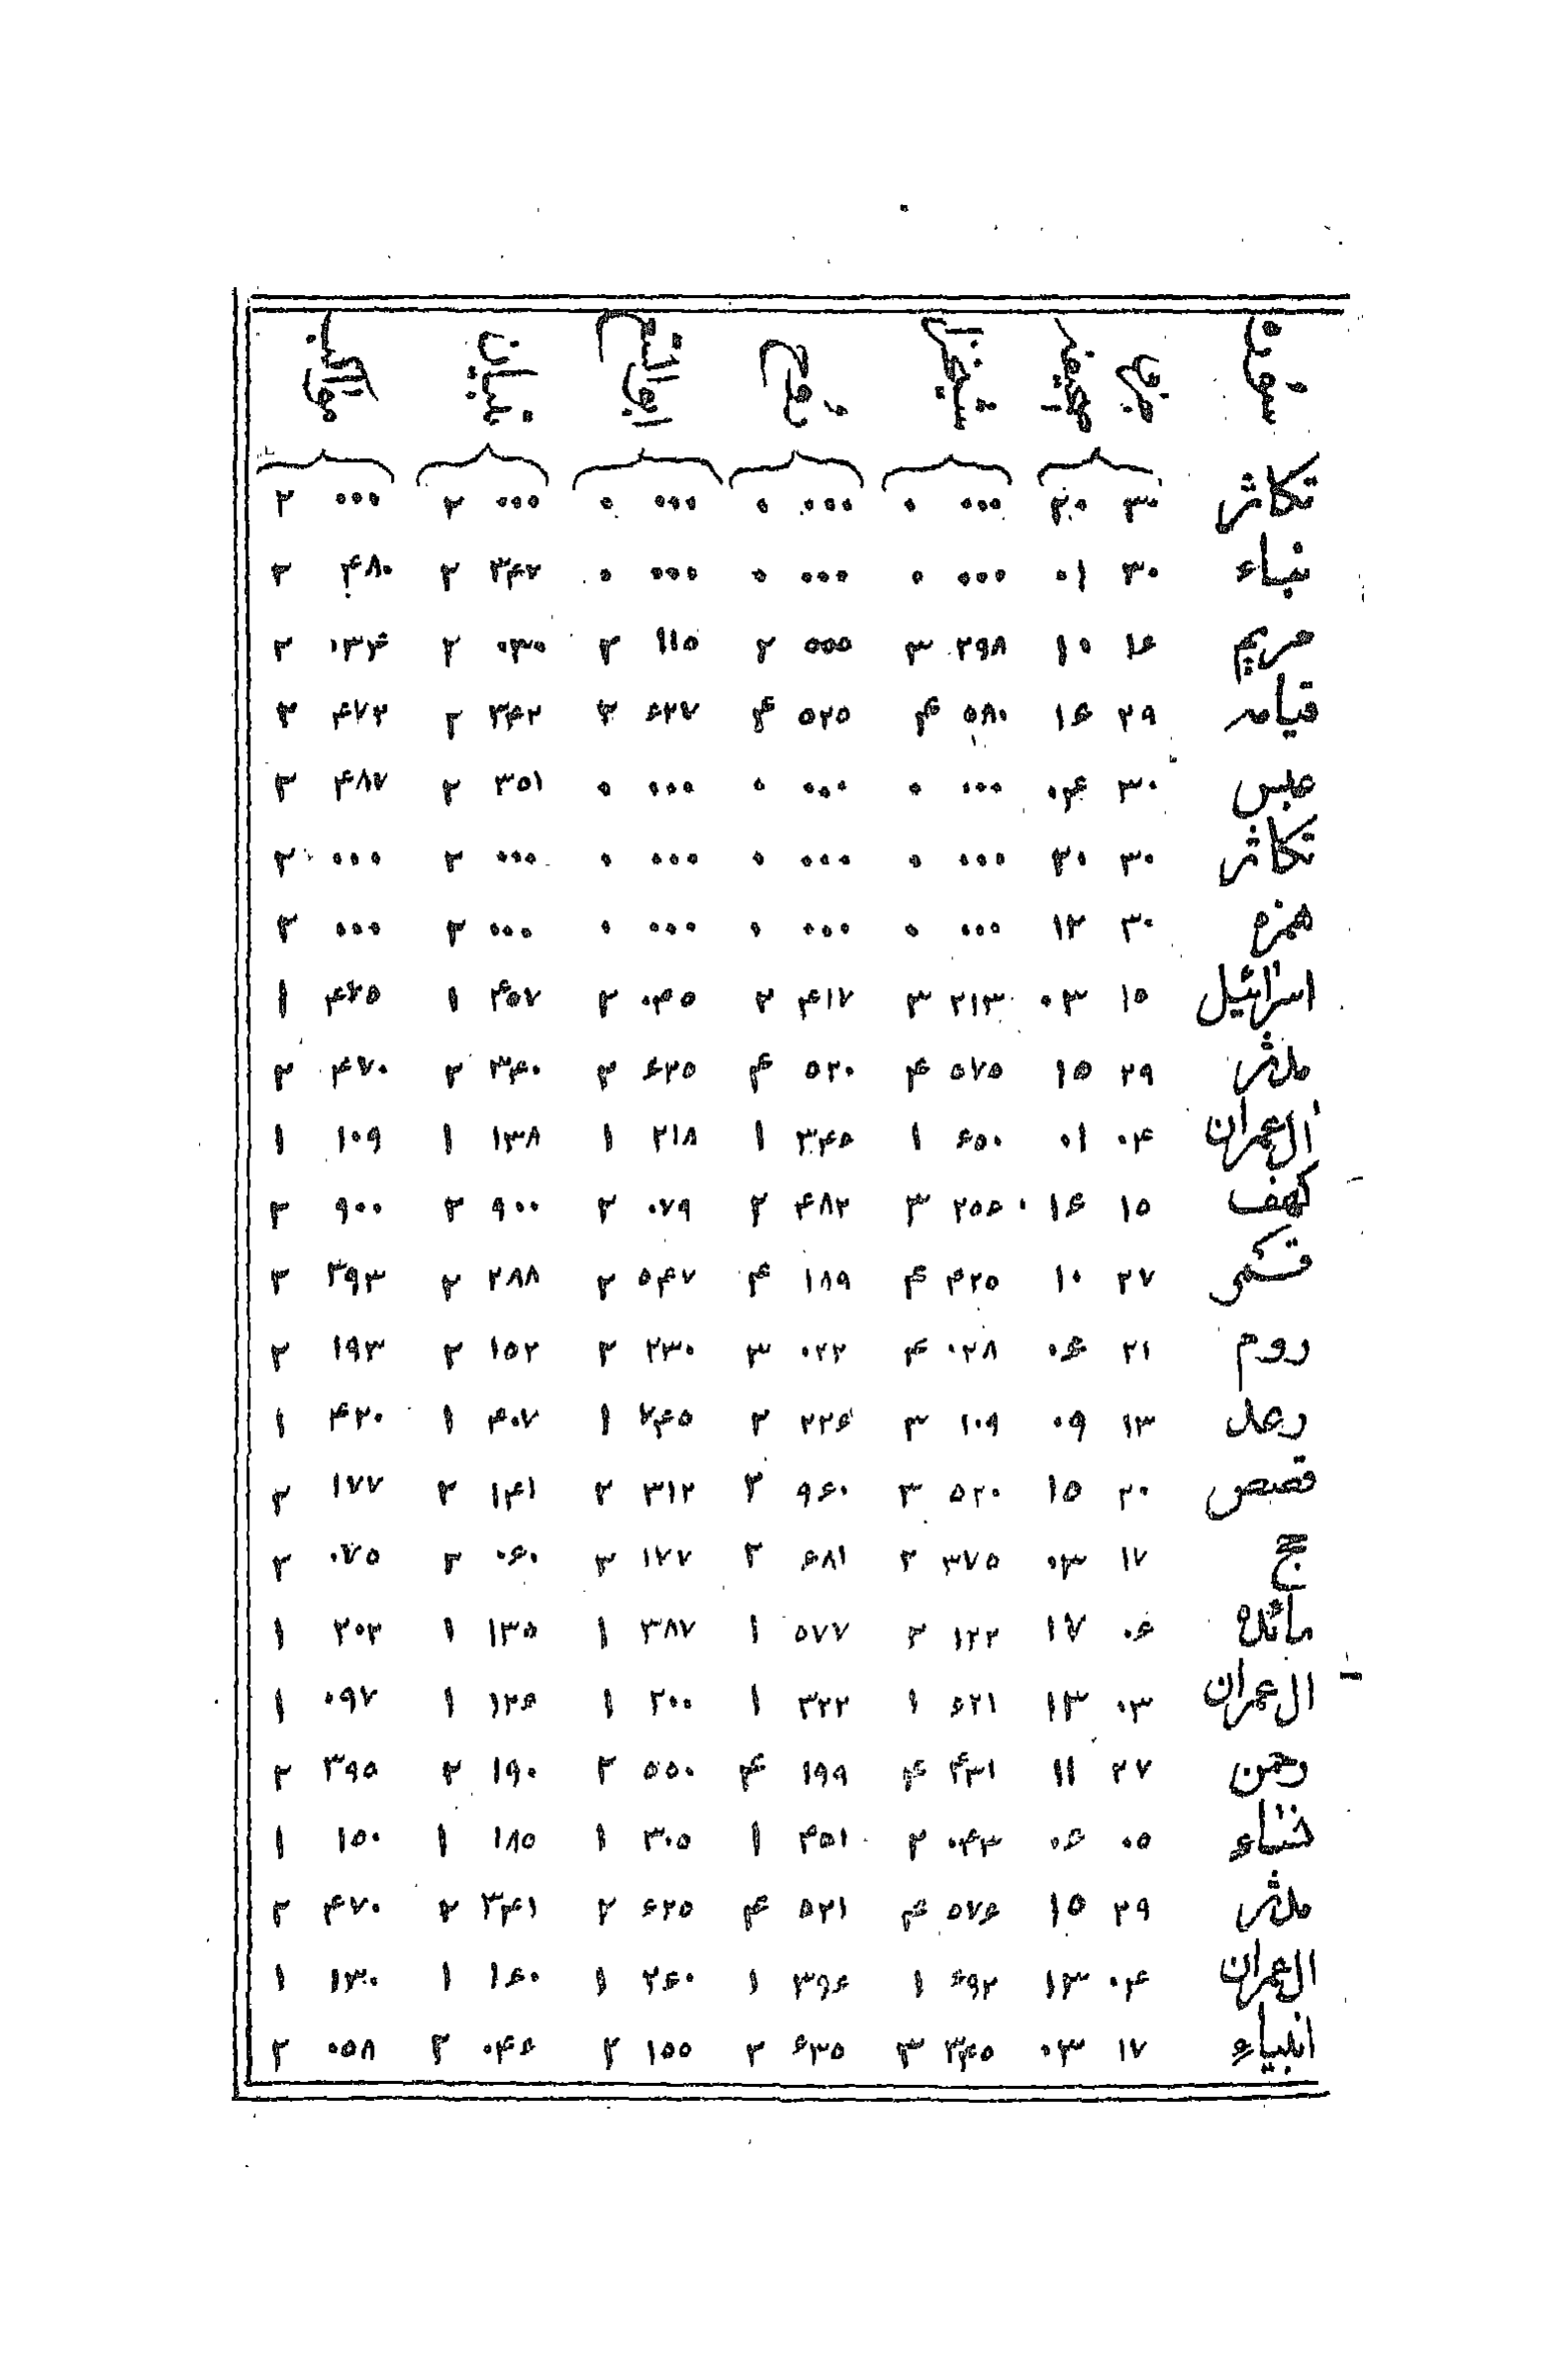 تکاثر ۳۰ ۲۰ ۰۰۰ ۰ ۰۰۰ ۰ ۰۰۰ ۰ ۰۰۰ ۲ ۰۰۰ ۲
نباء ۳۰ ۰۱ ۰۰۰ ۰ ۰۰۰ ۰ ۰۰۰ ۰ ۳۴۷ ۲ ۴۸۰ ۲
مریم ۱۶ ۱۰ ۲۹۸ ۳ ۵۵۵ ۲ ۱۱۵ ۲ ۰۳۰ ۲ ۰۳۴ ۲
قیامه ۲۹ ۱۶ ۵۸۰ ۴ ۵۲۵ ۴ ۶۲۷ ۲ ۳۴۲ ۲ ۴۷۲ ۲
عبس ۳۰ ۰۴ ۰۰۰ ۰ ۰۰۰ ۰ ۰۰۰ ۰ ۳۵۱ ۲ ۴۸۷ ۲
تکاثر ۳۰ ۲۰ ۰۰۰ ۰ ۰۰۰ ۰ ۰۰۰ ۰ ۰۰۰ ۲ ۰۰۰ ۲
همزه ۳۰ ۱۲ ۰۰۰ ۰ ۰۰۰ ۰ ۰۰۰ ۰ ۰۰۰ ۲ ۰۰۰ ۲
اسرائیل ۱۵ ۰۳ ۲۱۳ ۳ ۴۱۷ ۲ ۰۴۵ ۲ ۴۵۷ ۱ ۴۷۵ ۱
مدثر ۲۹ ۱۵ ۵۷۵ ۴ ۵۲۰ ۴ ۶۲۵ ۲ ۳۴۰ ۲ ۴۷۰ ۲
ال عمران ۰۴ ۰۱ ۶۵۰ ۱ ۳۴۵ ۱ ۲۱۸ ۱ ۱۳۸ ۱ ۱۰۹ ۱
کهف ۱۵ ۱۶ ۲۵۶ ۳ ۴۸۲ ۲ ۰۷۹ ۲ ۹۰۰ ۲ ۹۰۰ ۲
۲۷ ۱۰ ۴۲۵ ۴ ۱۸۹ ۴ ۵۴۷ ۲ ۲۸۸ ۲ ۳۹۳ ۲
روم ۲۱ ۰۶ ۰۲۸ ۴ ۰۲۲ ۳ ۲۳۰ ۲ ۱۵۲ ۲ ۱۹۳ ۲
رعد ۱۳ ۰۹ ۱۰۹ ۳ ۲۲۶ ۲ ۷۴۵ ۱ ۴۰۷ ۱ ۴۲۰ ۱
قصص ۲۰ ۱۵ ۵۲۰ ۳ ۹۶۰ ۲ ۳۱۲ ۲ ۱۴۱ ۲ ۱۷۷ ۲
حج ۱۷ ۰۳ ۳۷۵ ۲ ۶۸۱ ۲ ۱۷۷ ۲ ۰۶۰ ۲ ۰۷۵ ۲
مائده ۰۶ ۱۷ ۱۲۲ ۲ ۵۷۷ ۱ ۳۸۷ ۱ ۱۳۵ ۱ ۲۰۲ ۱
ال عمران ۰۳ ۱۳ ۶۲۱ ۱ ۳۲۲ ۱ ۲۰۰ ۱ ۱۲۶ ۱ ۰۹۷ ۱
رحمن ۲۷ ۱۱ ۴۳۱ ۴ ۱۹۹ ۴ ۵۵۰ ۲ ۱۹۰ ۲ ۳۹۵ ۲
۰۵ ۰۶ ۰۴۳ ۲ ۴۵۱ ۱ ۳۰۵ ۱ ۱۸۵ ۱ ۱۵۰ ۱
مدثر ۲۹ ۱۵ ۵۷۶ ۴ ۵۲۱ ۴ ۶۲۵ ۲ ۳۴۱ ۲ ۴۷۰ ۲
ال عمران ۰۴ ۱۳ ۶۹۲ ۱ ۳۹۶ ۱ ۲۶۰ ۱ ۱۶۰ ۱ ۱۳۰ ۱
انبیاء ۱۷ ۰۳ ۳۴۵ ۳ ۶۳۵ ۲ ۱۵۵ ۲ ۰۴۶ ۲ ۰۵۸ ۲